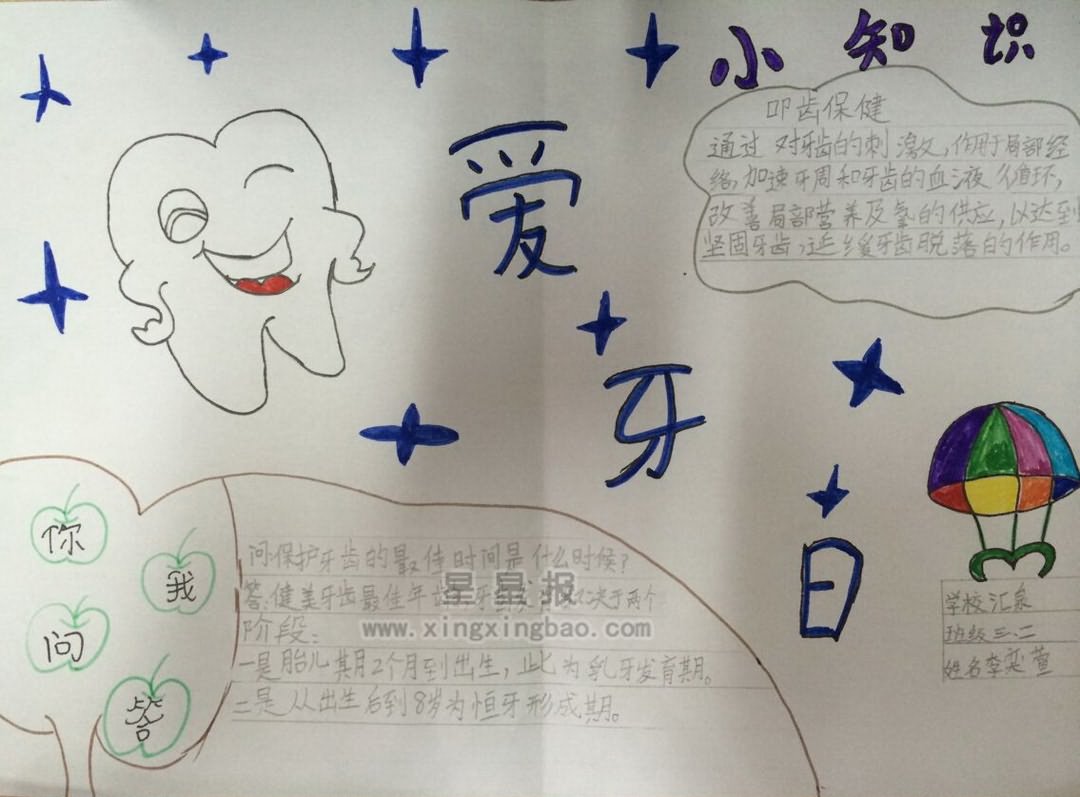 小知识
叩齿保健
通过对牙齿的刺激,作用于局部经
络,加速牙周和牙齿的血液循环,
改善局部营养及氧的供应,以达到
坚固牙齿,延缓牙齿脱落的作用。
爱
牙
日
你
我
问
答
问:保护牙齿的最佳时间是什么时候?
答:健美牙齿最佳年 牙 决于两个
阶段:
一是胎儿其月2个月到出生,此为乳牙发育期。
二是从出生后到8岁为恒牙形成期。
星星报
www.xingxingbao.com
学校汇泉
班级三.二
姓名李奕萱